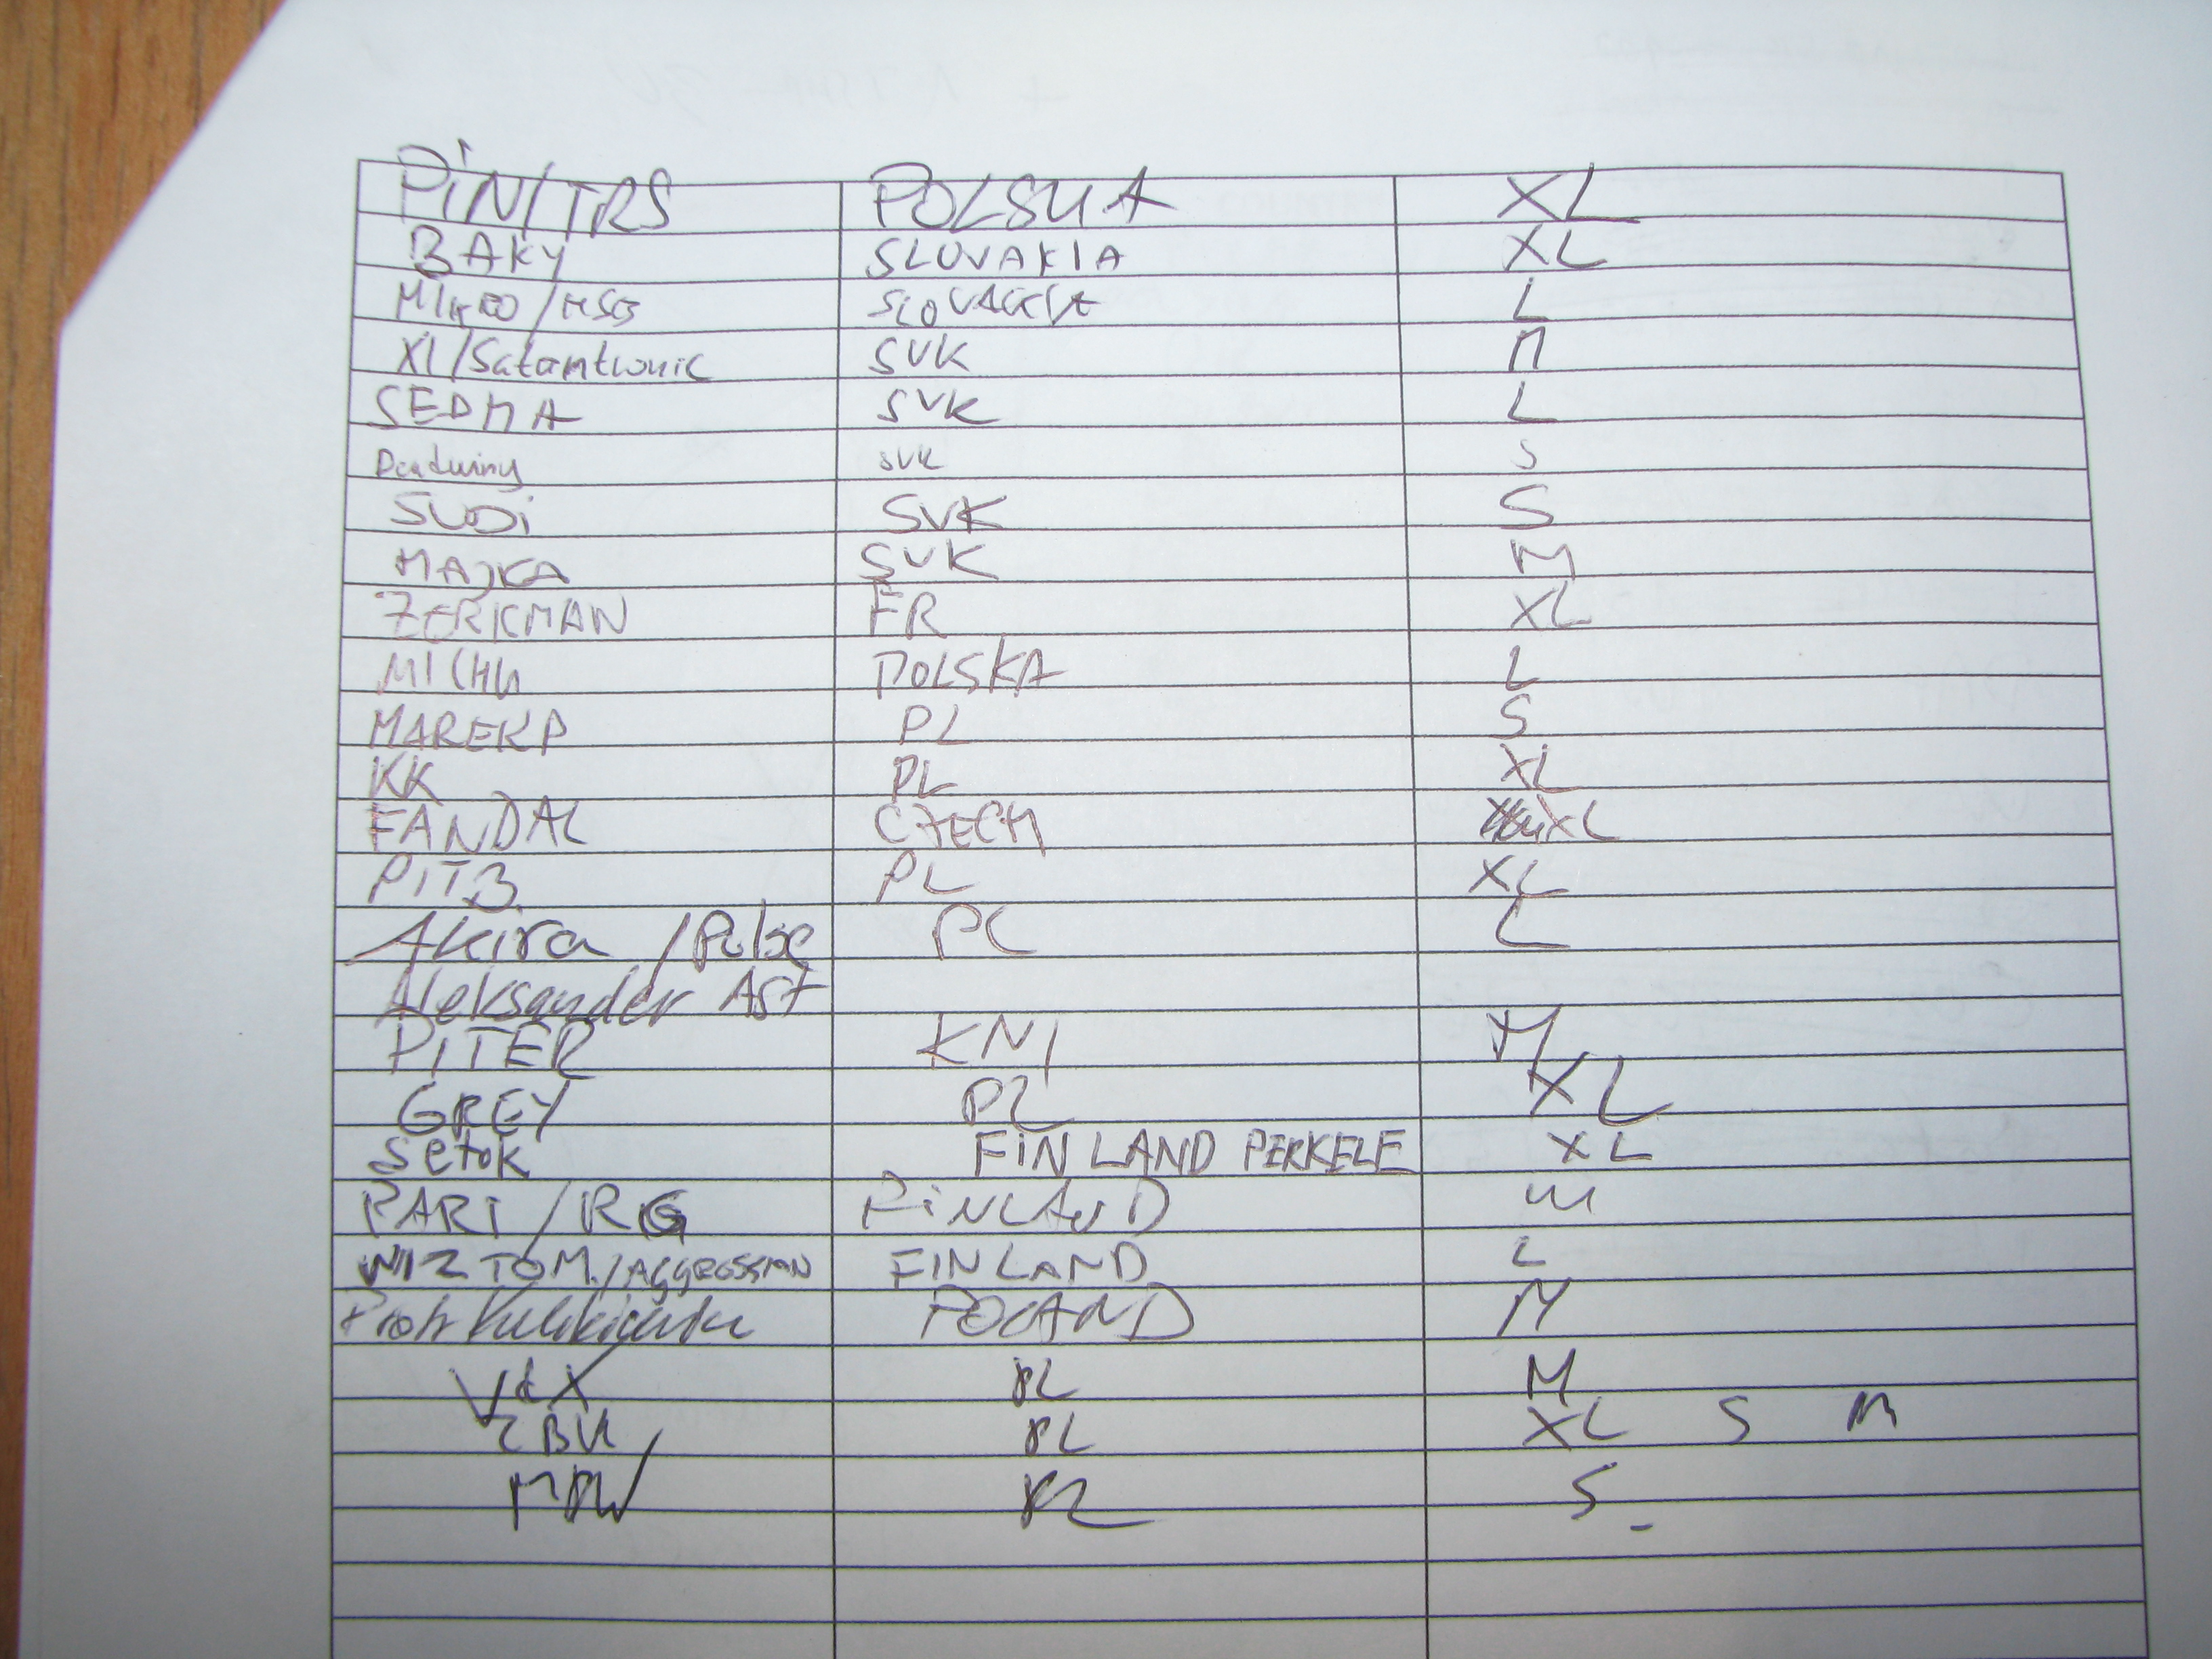 PIN/TRS POLSKA XL
BAKY SLOVAKIA XL
MIKRO/HSB L
XI/Satantronic SVK M
SEDMA SVK L
SVK S
SUDI SVK S
MAJKA SVK M
ZERKMAN FR XL
MICHU POLSKA L
MAREKP PL S
KK PL XL
FANDAL CZECH XL
PITB. PL XL
Akira /Pulse PL L
Aleksander Ast
PITER KNJ M
GREY PL XL
Setok FINLAND PERKELE XL
PARTI/RG FINLAND M
WIZ TOM./AGGRESSION FINLAND L
Piotr POLAND M
VdX PL M
ZBYK PL XL S M
PL S